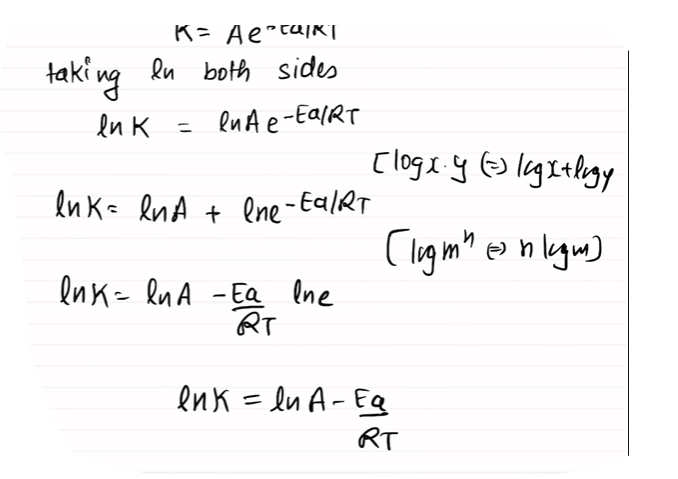 K = Ae-Ea/RT
taking ln both sides
ln K = lnA e-Ea/RT
[logx.y (=) logx+logy
lnK = lnA + lne-Ea/RT
[logm^n (=) n logm)
lnK = lnA - Ea/RT lne
lnK = ln A - Ea/RT